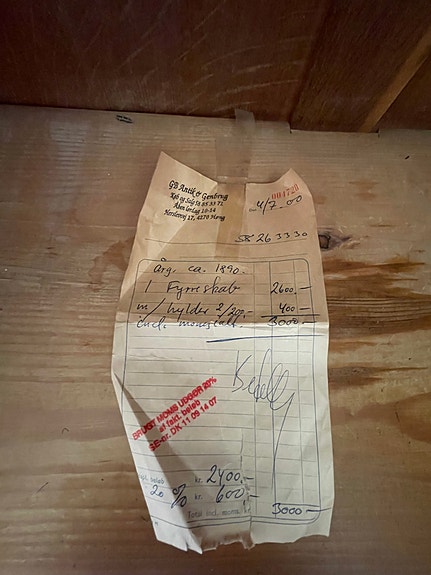 GB Antik & Genbrug
Køb og Salg 58 85 33 71
Åben lørdag 10-14
Herredsvej 17, 4270 Høng
004720
4/7.00
58 26 33 30
årg. ca. 1890.
1 Fyrreskab 2600.-
m/hylder 2/200.- 400.-
incl. moms 3000.-
BRUGT MOMS UDGØR 20%
af fakt. beløb
SE-nr. DK 11 09 14 07
beløb kr. 2400.-
20 % kr. 600.-
Total incl. moms kr. 3000.-